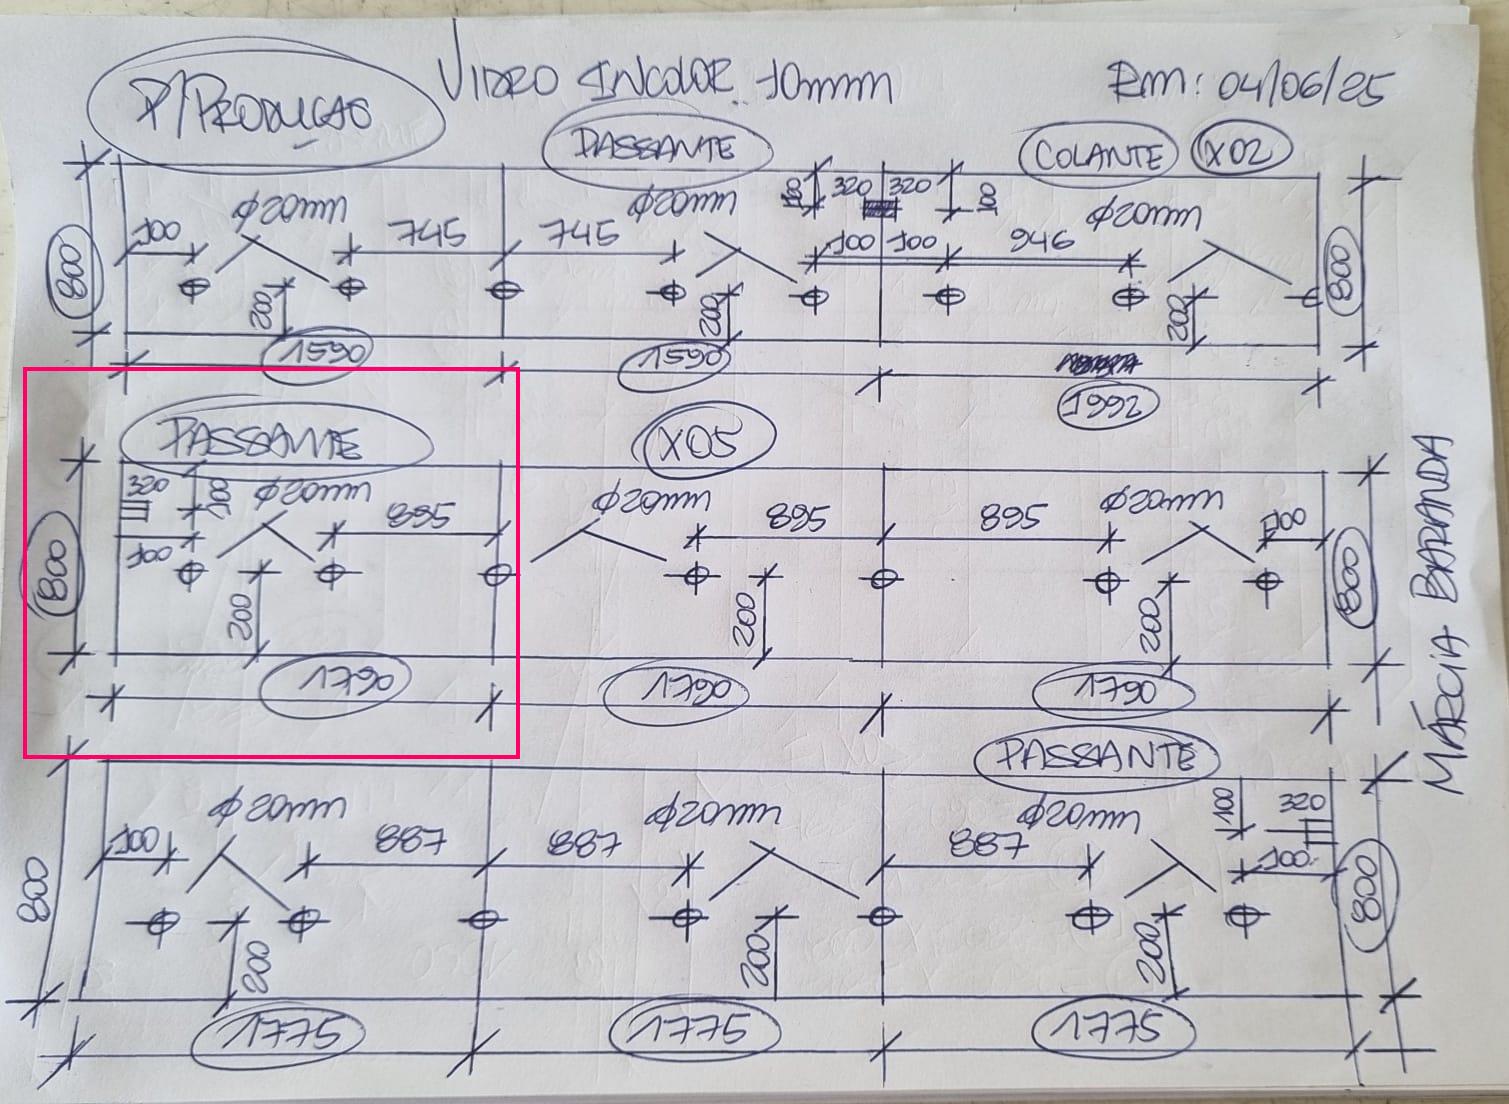 P/PRODUÇÃO
VIDRO INCOLOR 10mm
RM: 04/06/25
PASSANTE
COLANTE
X02
320 320
100 100
ϕ20mm
ϕ20mm
ϕ20mm
100
745
745
100 100
946
800
800
200
200
200
1590
1590
1992
PASSANTE
X05
320
100
ϕ20mm
895
ϕ20mm
895
895
ϕ20mm
100
100
800
800
200
200
200
1790
1790
1790
MÁRCIA BARANDA
PASSANTE
ϕ20mm
ϕ20mm
ϕ20mm
100
320
100
887
887
887
100
800
800
200
200
200
1775
1775
1775